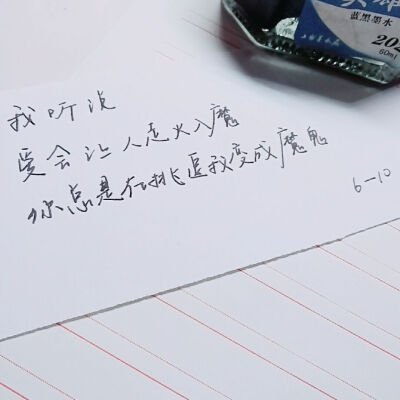 蓝黑墨水
202
60ml
我听说
爱会让人走火入魔
你总是在挑逗我变成魔鬼
6-10